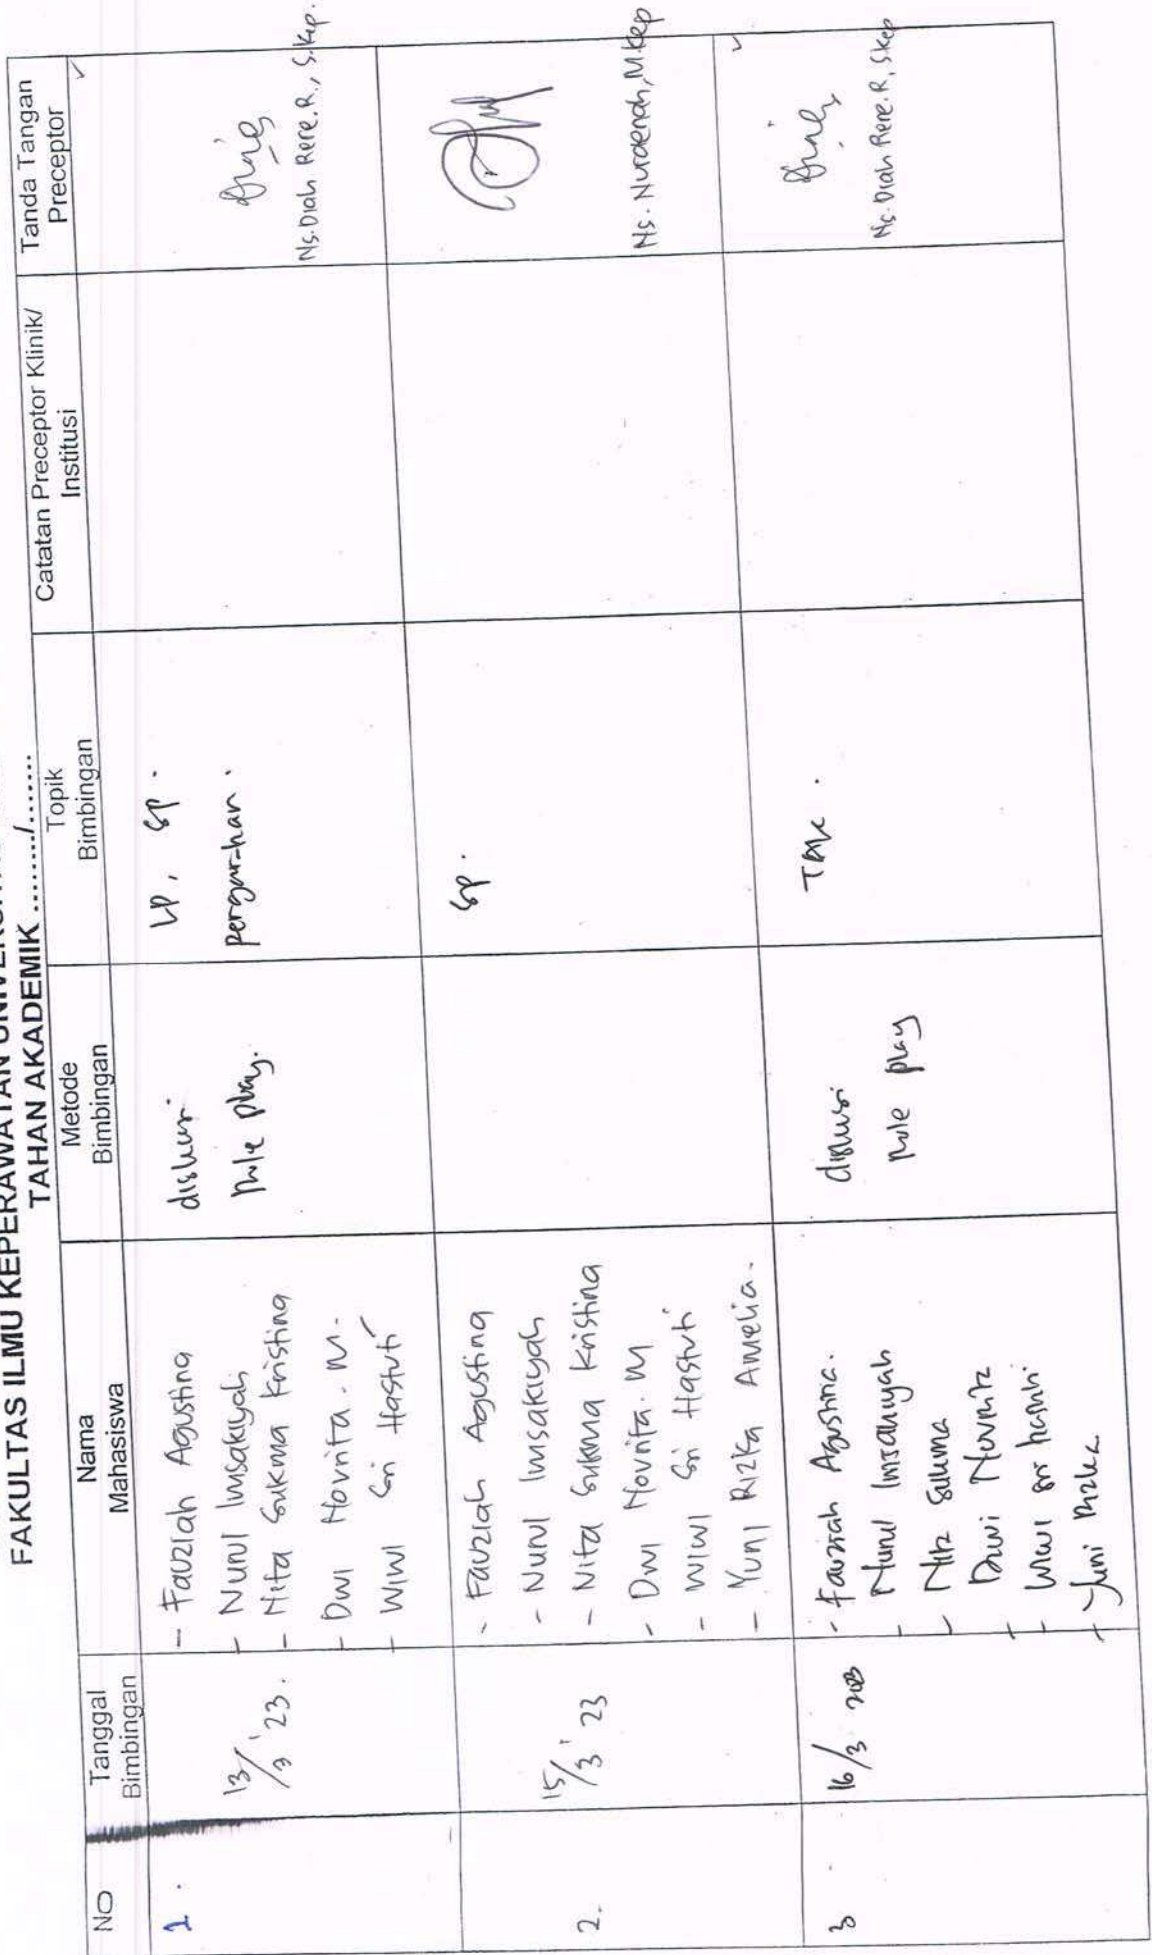 FAKULTAS ILMU KEPERAWATAN
TAHAN AKADEMIK ......../........
NO
Tanggal
Bimbingan
Nama
Mahasiswa
Metode
Bimbingan
Topik
Bimbingan
Catatan Preceptor Klinik/
Institusi
Tanda Tangan
Preceptor
1.
13/3 '23.
- Fauziah Agustina
- Nurul Imsakiyah
- Nita Sukma Kristina
- Dwi Novrita. M.
- Wiwi Sri Hastuti
diskusi
Role play.
LP, SP.
pengarahan.
Ns. Diah Rere. R., S.Kep.
2.
15/3 '23
- Fauziah Agustina
- Nurul Imsakiyah
- Nita Sukma Kristina
- Dwi Novrita. M
- Wiwi Sri Hastuti
- Yuni Rizka Amelia.
SP.
Ns. Nuraenah, M.Kep
3
16/3 2023
- Fauziah Agustina.
- Nurul Imsakiyah
- Nita Sukma
- Dwi Novrita
- Wiwi Sri hastuti
- Yuni Rizka
diskusi
Role play
TAK.
Ns. Diah Rere. R, S.Kep